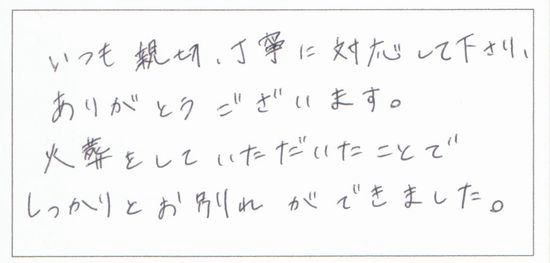 いつも親切、丁寧に対応して下さり、
ありがとうございます。
火葬をしていただいたことで
しっかりとお別れができました。